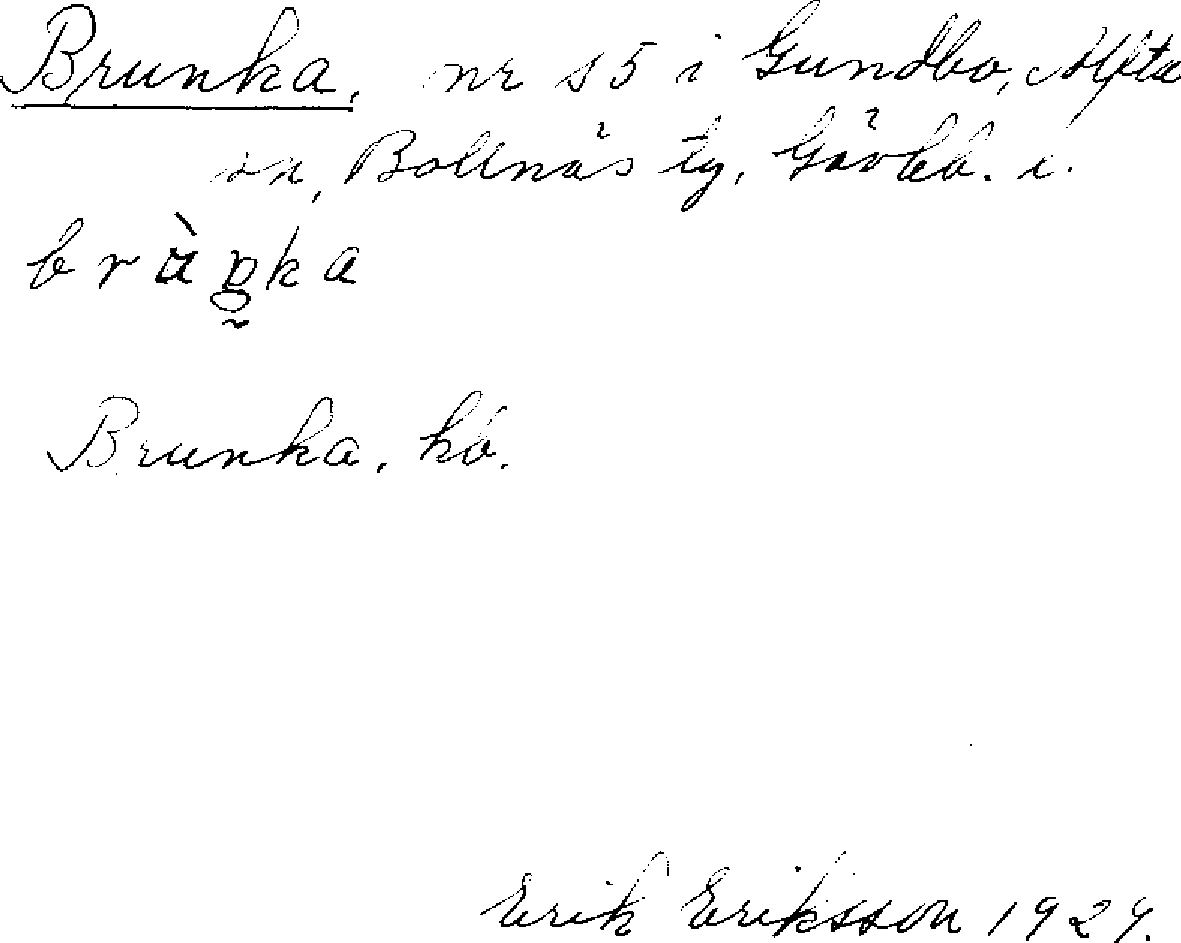 Brunka, nr 15 i Gundbo, Alfta
sn, Bollnäs tg, Gävleb. l.
Brunka, kö.
Erik Eriksson 1929.